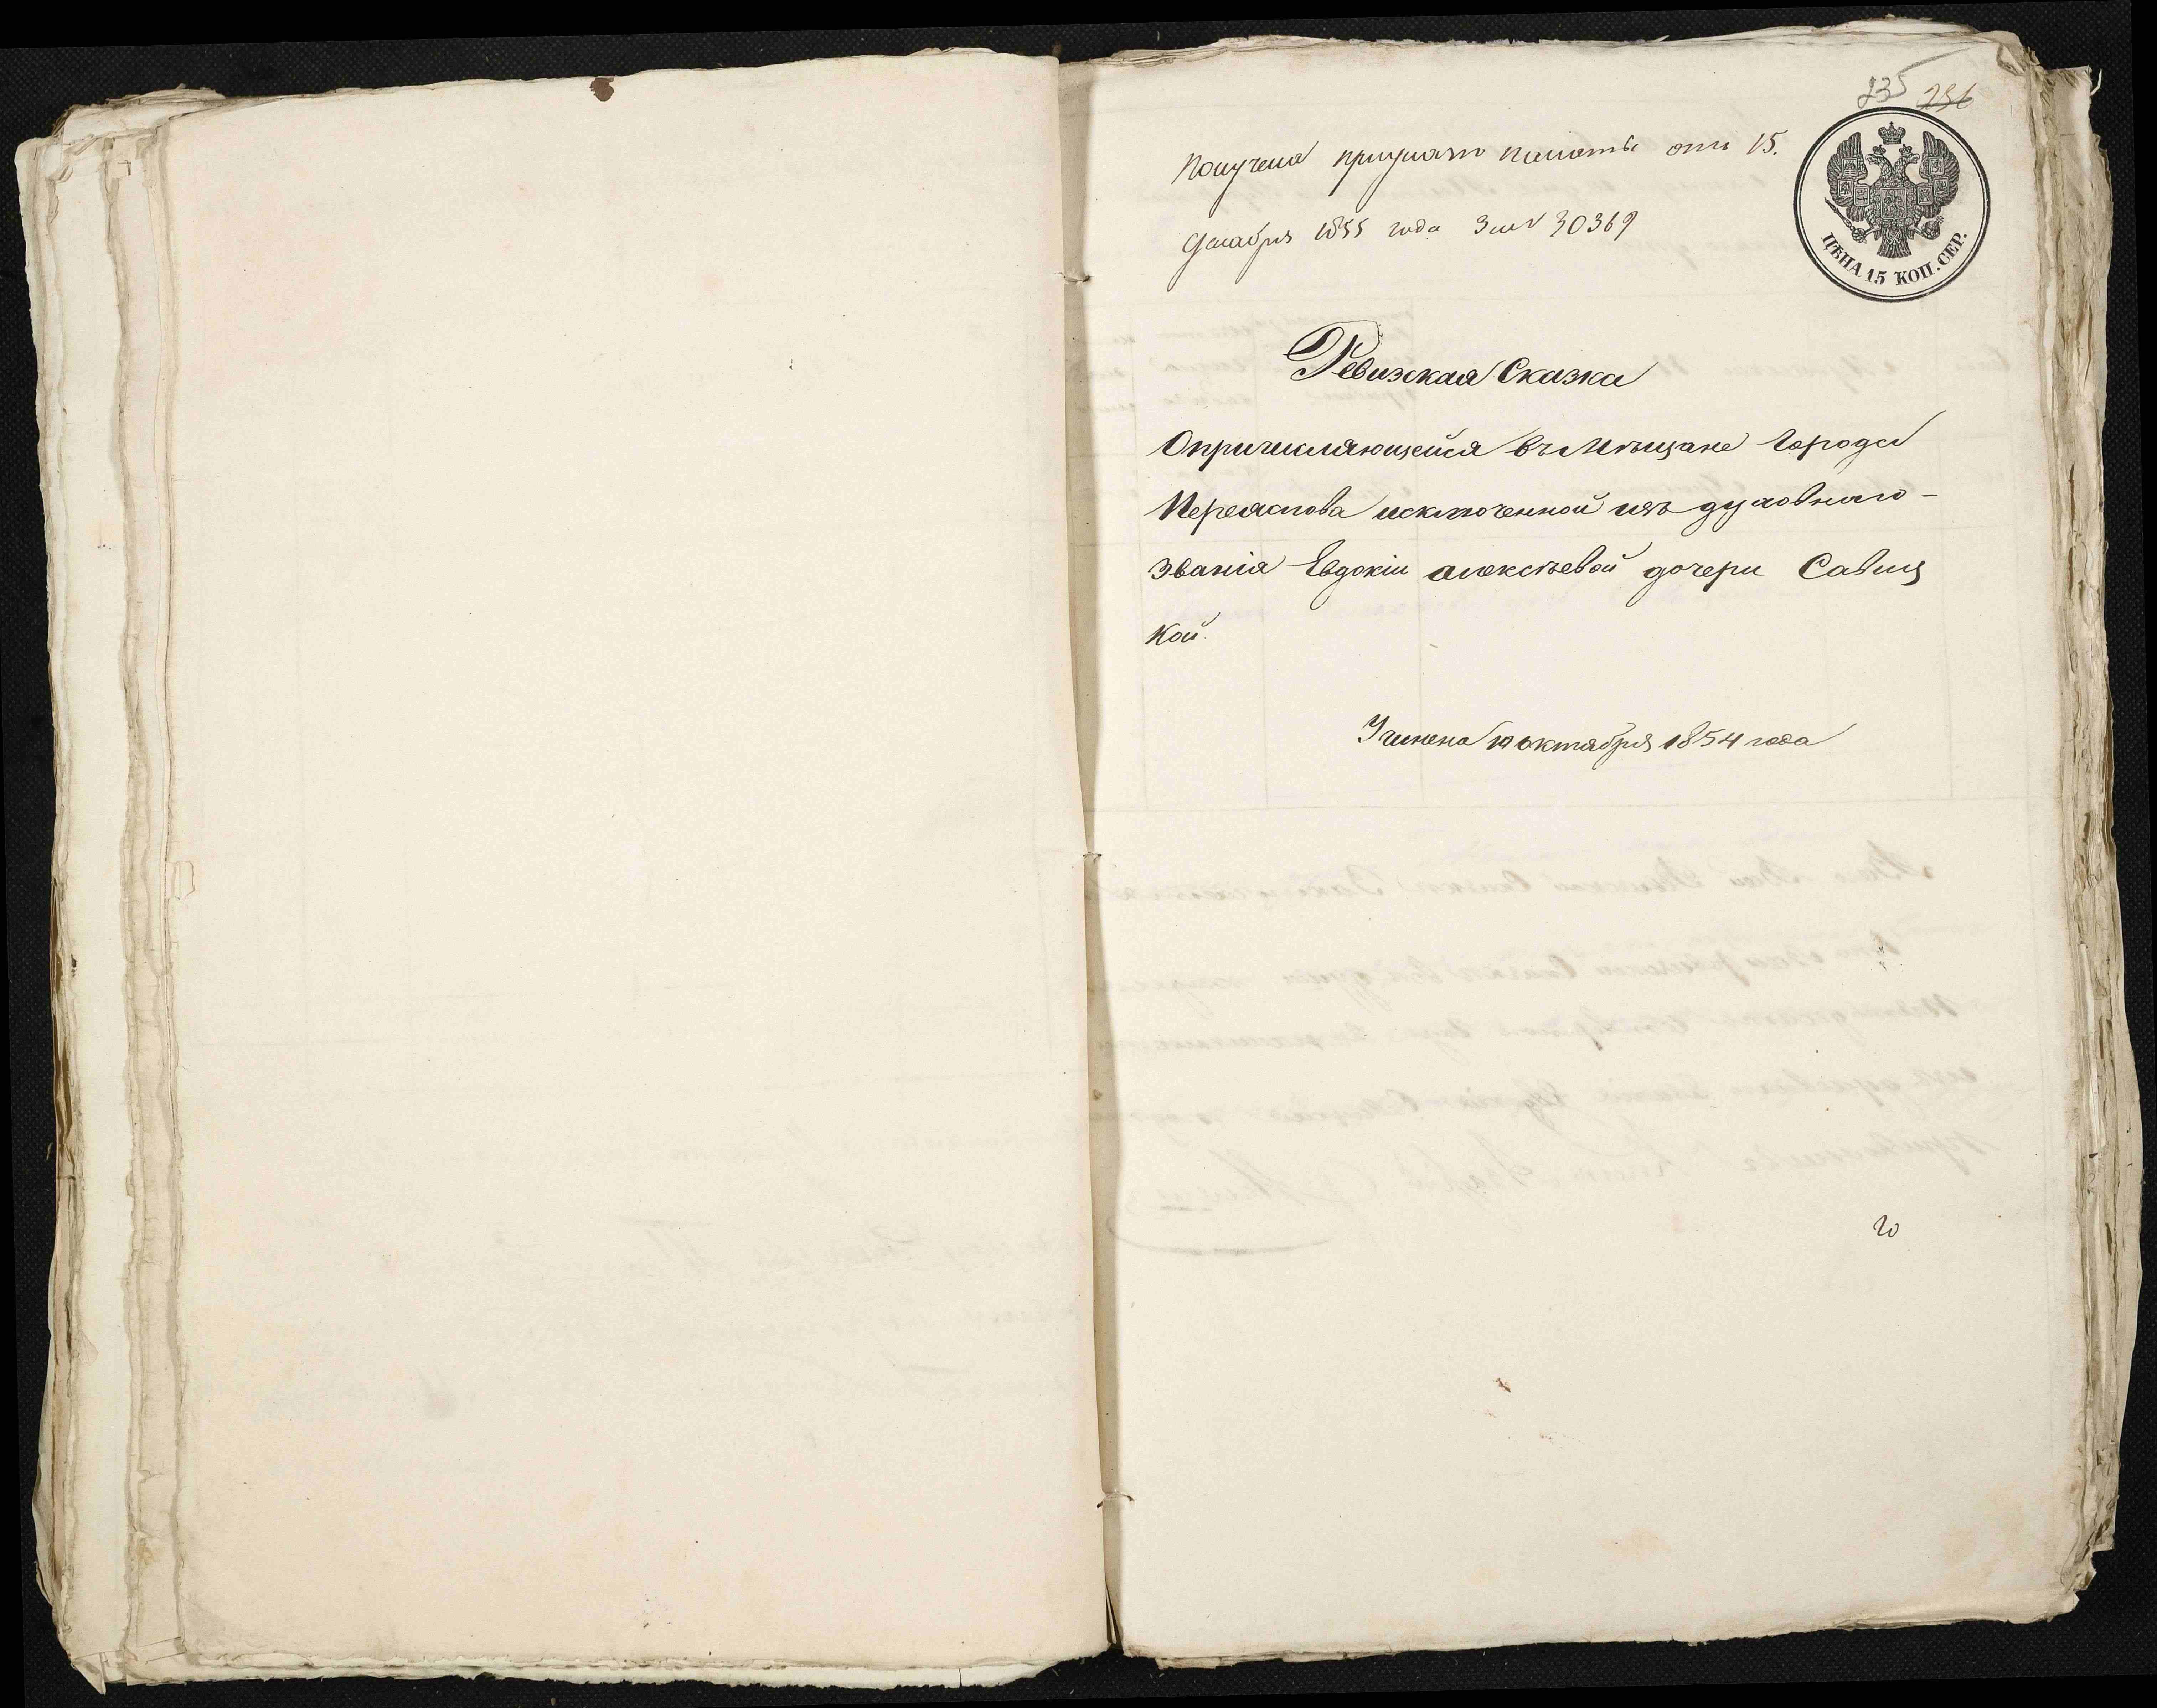 235 236
Получена при указе палаты отъ 15.
Декабря 1855 года за № 30369
ЦѢНА 15 КОП. СЕР.
Ревизская Сказка
О причисляющейся въ Мѣщане города
Переяслова исключенной изъ духовнаго-
званія Евдокіи алексѣевой дочери Савиц
кой.
Учинена 10 октября 1854 года